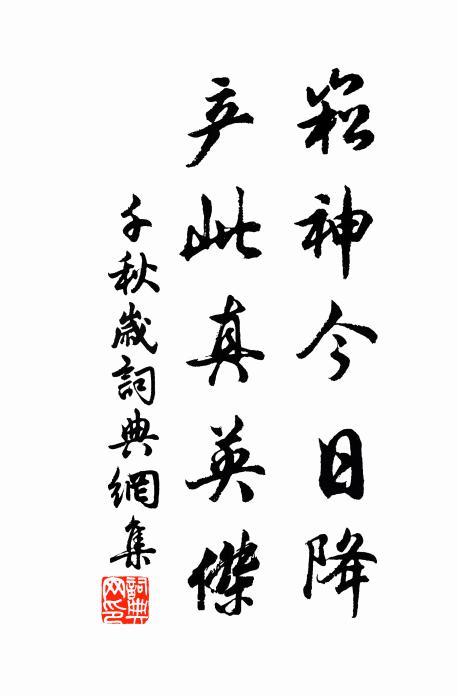 崧神今日降
产此真英傑
千秋歲詞典網集
詞典